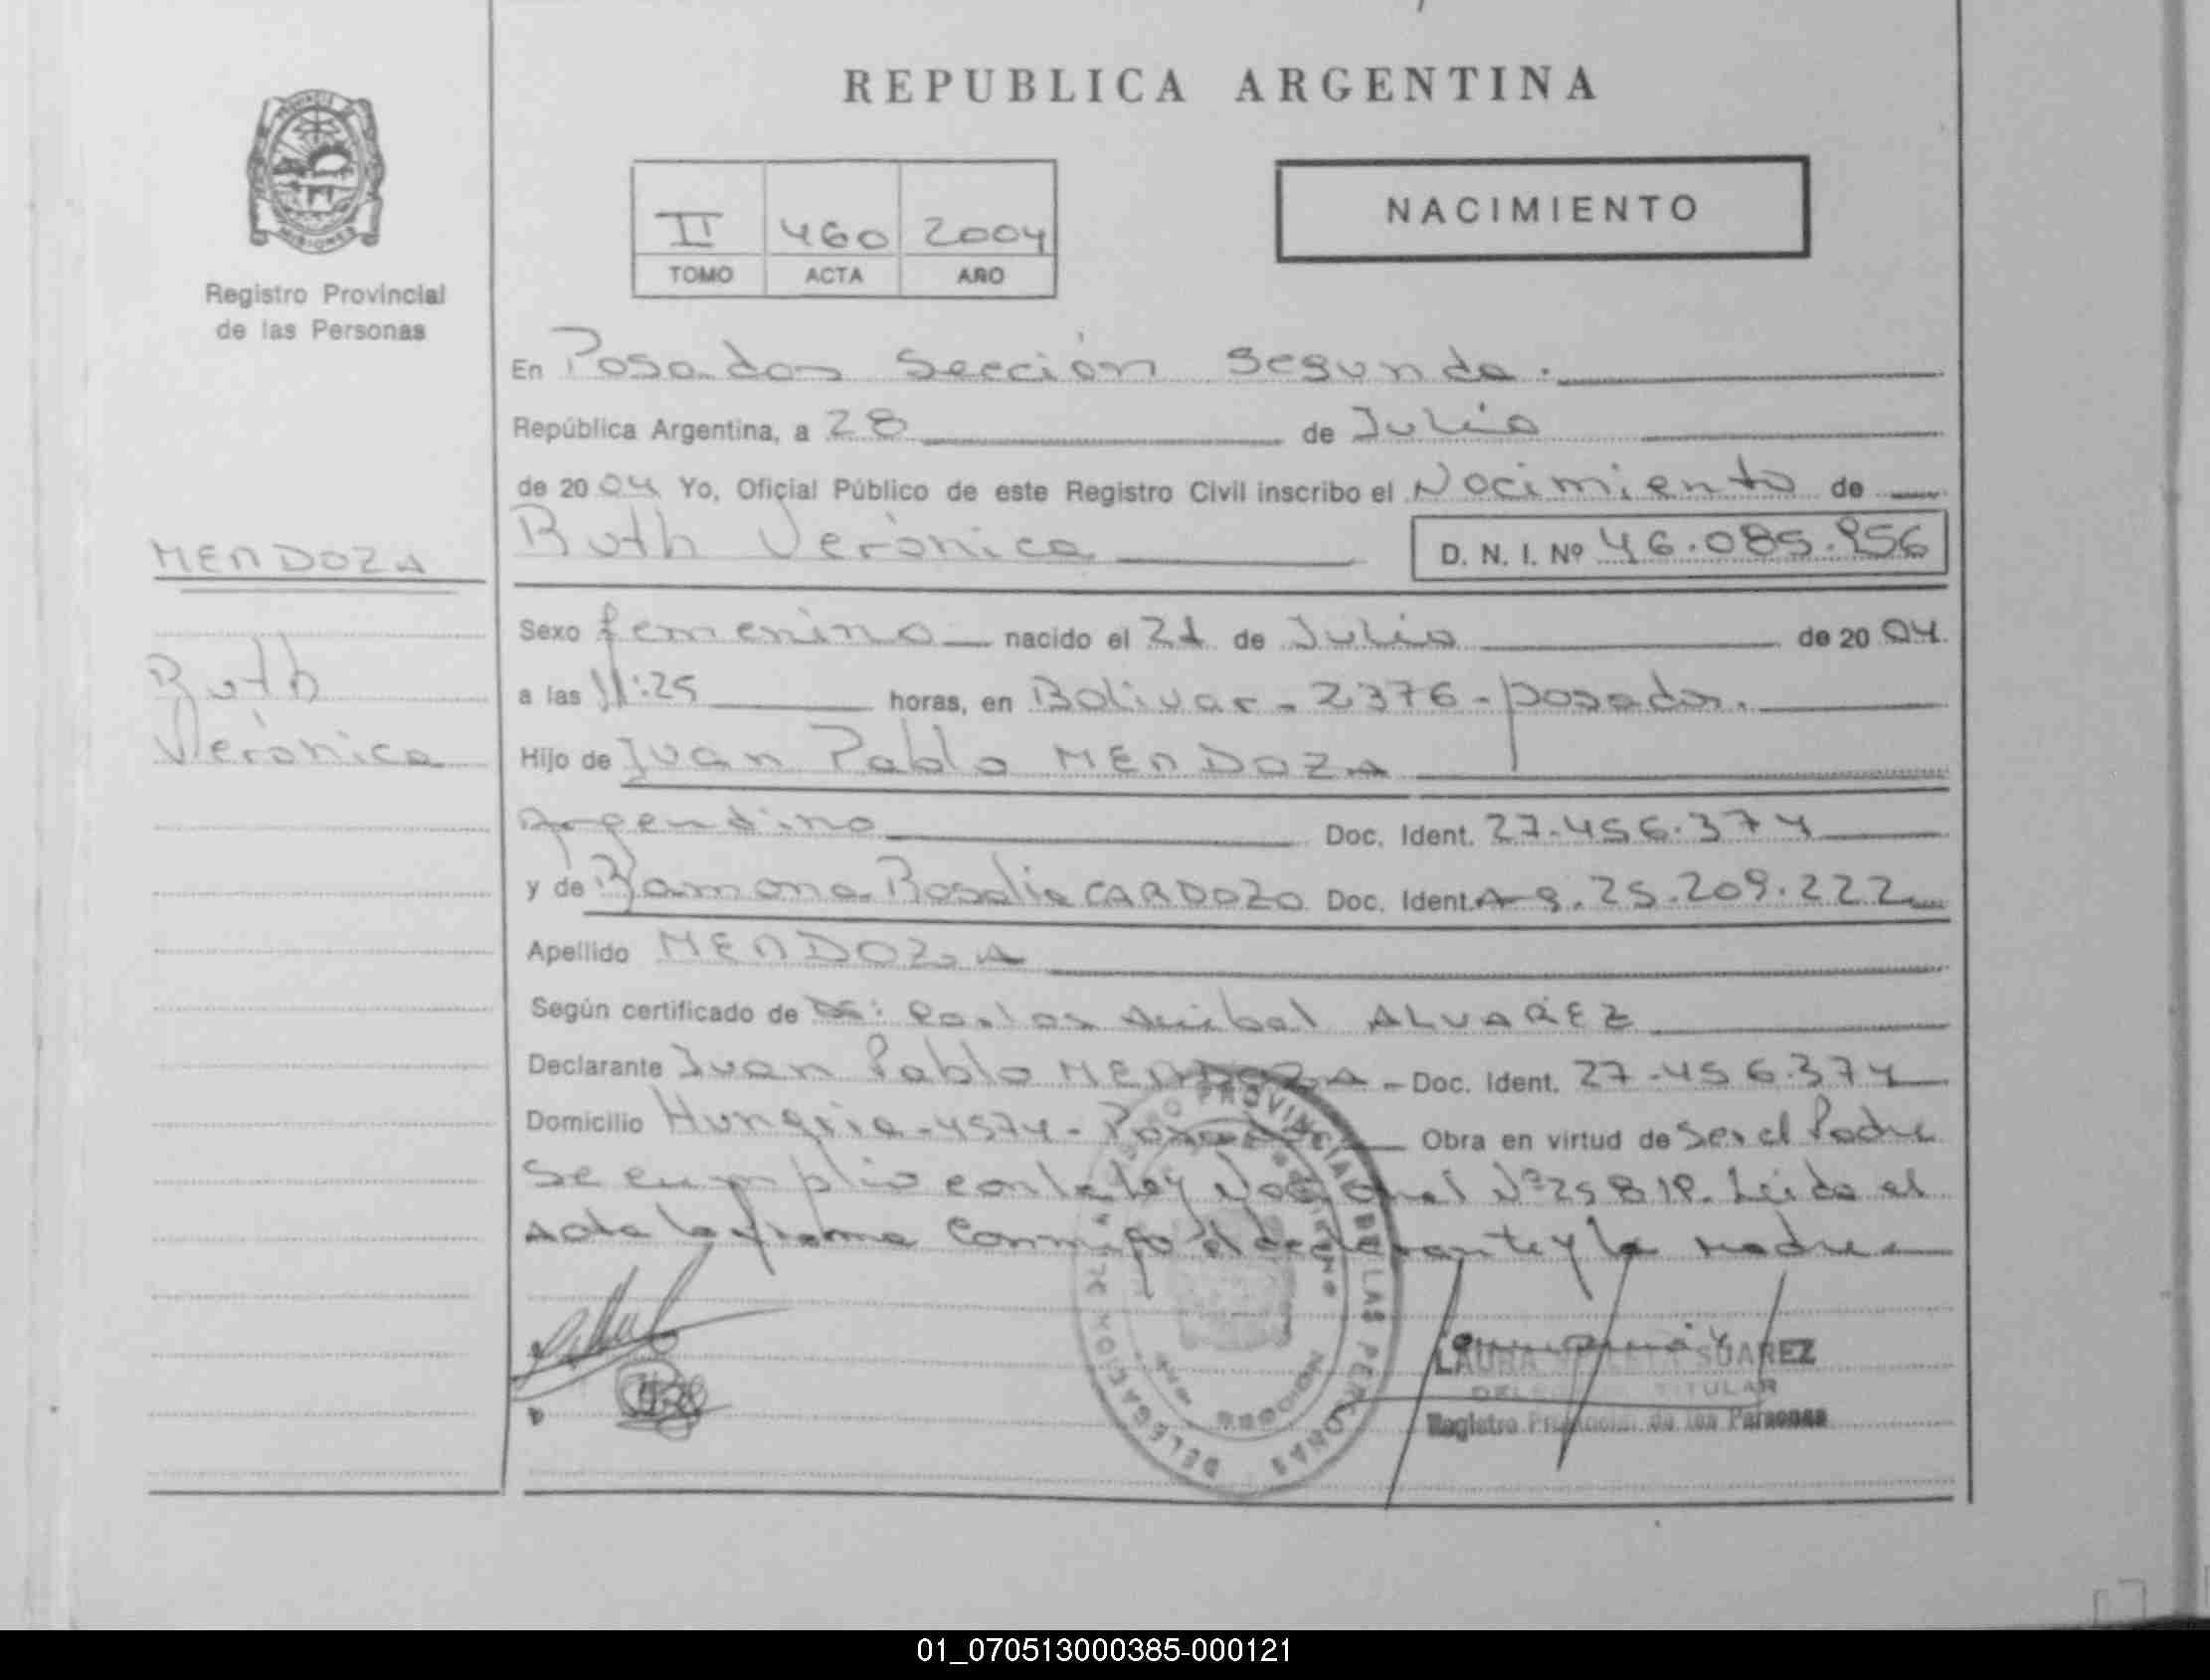 REPUBLICA ARGENTINA
NACIMIENTO
II 460 2004
TOMO ACTA AÑO
MISIONES
Registro Provincial
de las Personas
En Posadas Sección Segunda.
República Argentina, a 28 de Julio
de 2004 Yo, Oficial Público de este Registro Civil inscribo el Nacimiento de
Ruth Verónica D. N. I. Nº 46.085.956
MENDOZA
Ruth
Verónica
Sexo femenino nacido el 21 de Julio de 2004.
a las 11:25 horas, en Bolivar - 2376 - posadas.
Hijo de Juan Pablo MENDOZA
Argentino Doc. Ident. 27.456.374
y de Ramona Rosalia CARDOZO Doc. Ident. Arg. 25.209.222
Apellido MENDOZA
Según certificado de Dr: Carlos Anibal ALVAREZ
Declarante Juan Pablo MENDOZA - Doc. Ident. 27.456.374
Domicilio Hungria - 4574 - Posadas Obra en virtud de Ser el Padre
Se cumplio con la ley Nacional Nº 25818. Leida el
Acta la firma conmigo el declarante y la madre
REGISTRO PROVINCIAL DE LAS PERSONAS
DELEGACION
MISIONES
LAURA SUAREZ
DELEGADA TITULAR
Registro Provincial de las Personas
01_070513000385-000121